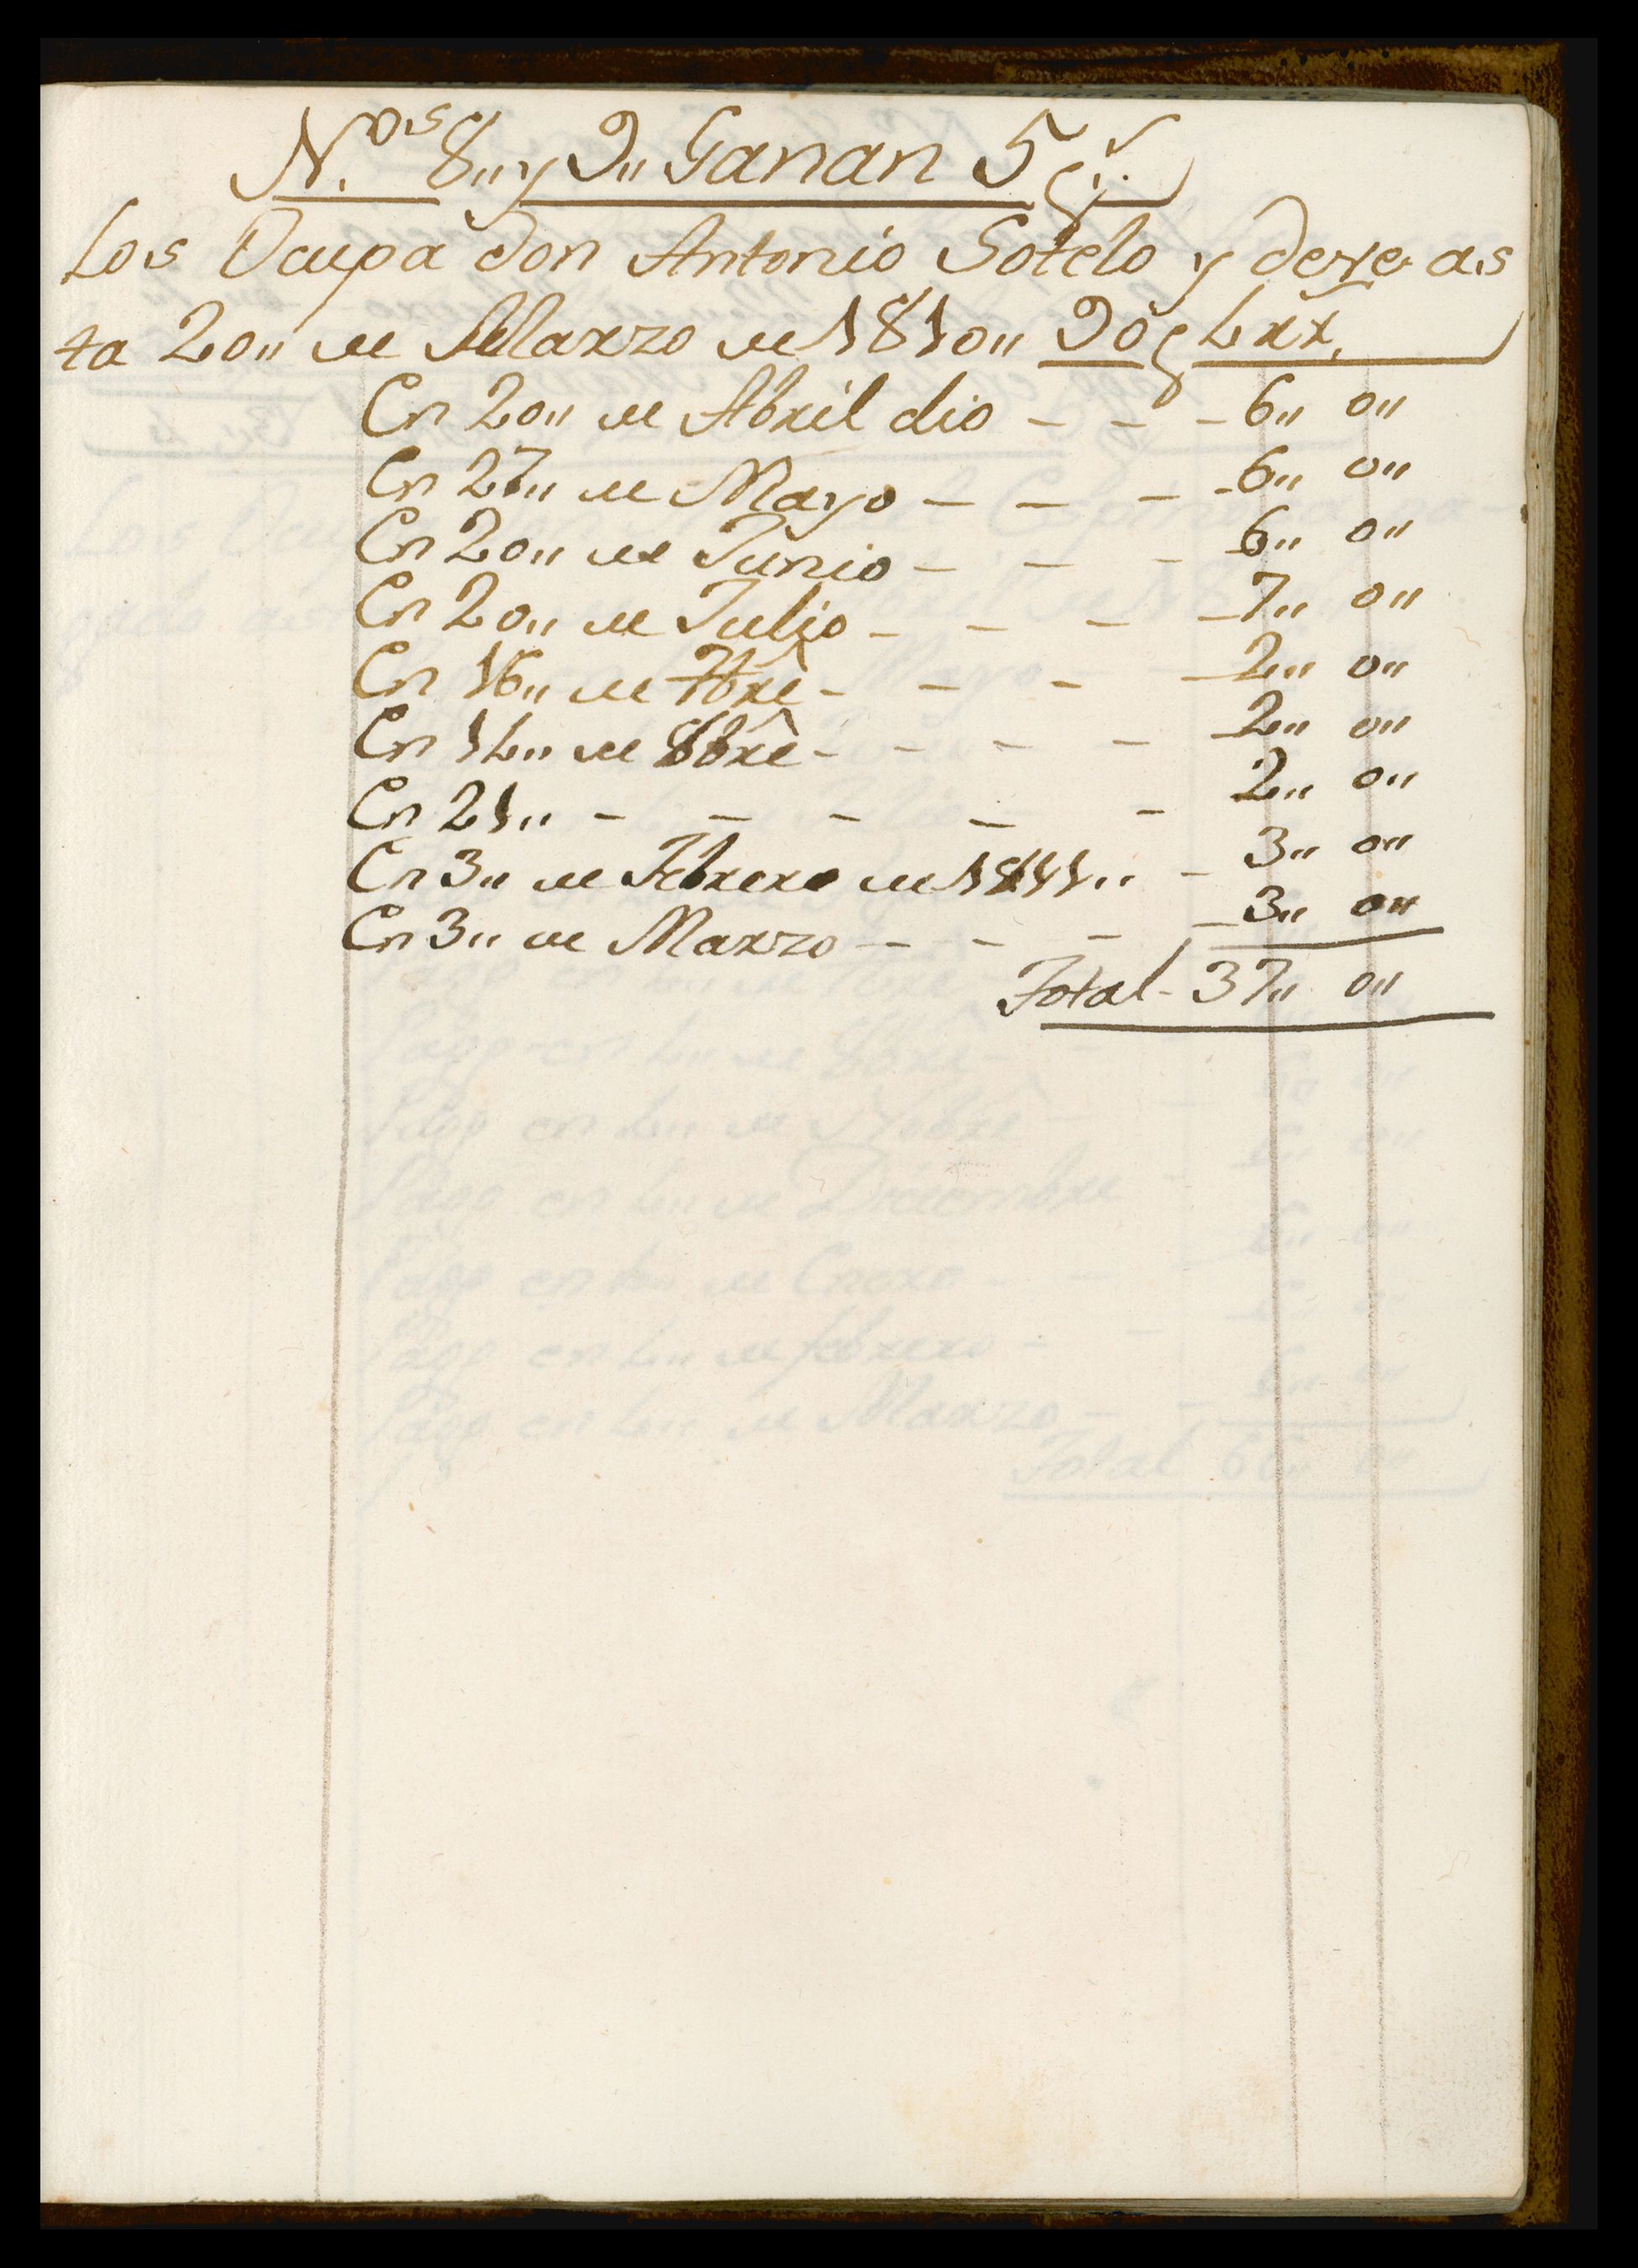 N.os 8,, y 9,, Ganan 5 ps.
Los Ocupa don Antonio Sotelo y deve as
ta 20,, de Marzo de 1810,, 90 ps 4 rrs.
En 20,, de Abril dio - - - 6,, 0,,
En 27,, de Mayo - - - - 6,, 0,,
En 20,, de Junio - - - 6,, 0,,
En 20,, de Julio - - - - 7,, 0,,
En 16,, de 7bre - - - - 2,, 0,,
En 14,, de 8bre - - - - - 2,, 0,,
En 21,, - - - - - 2,, 0,,
En 3,, de Febrero de 1811,, - 3,, 0,,
En 3,, de Marzo - - - - 3,, 0,,
Total - 37,, 0,,